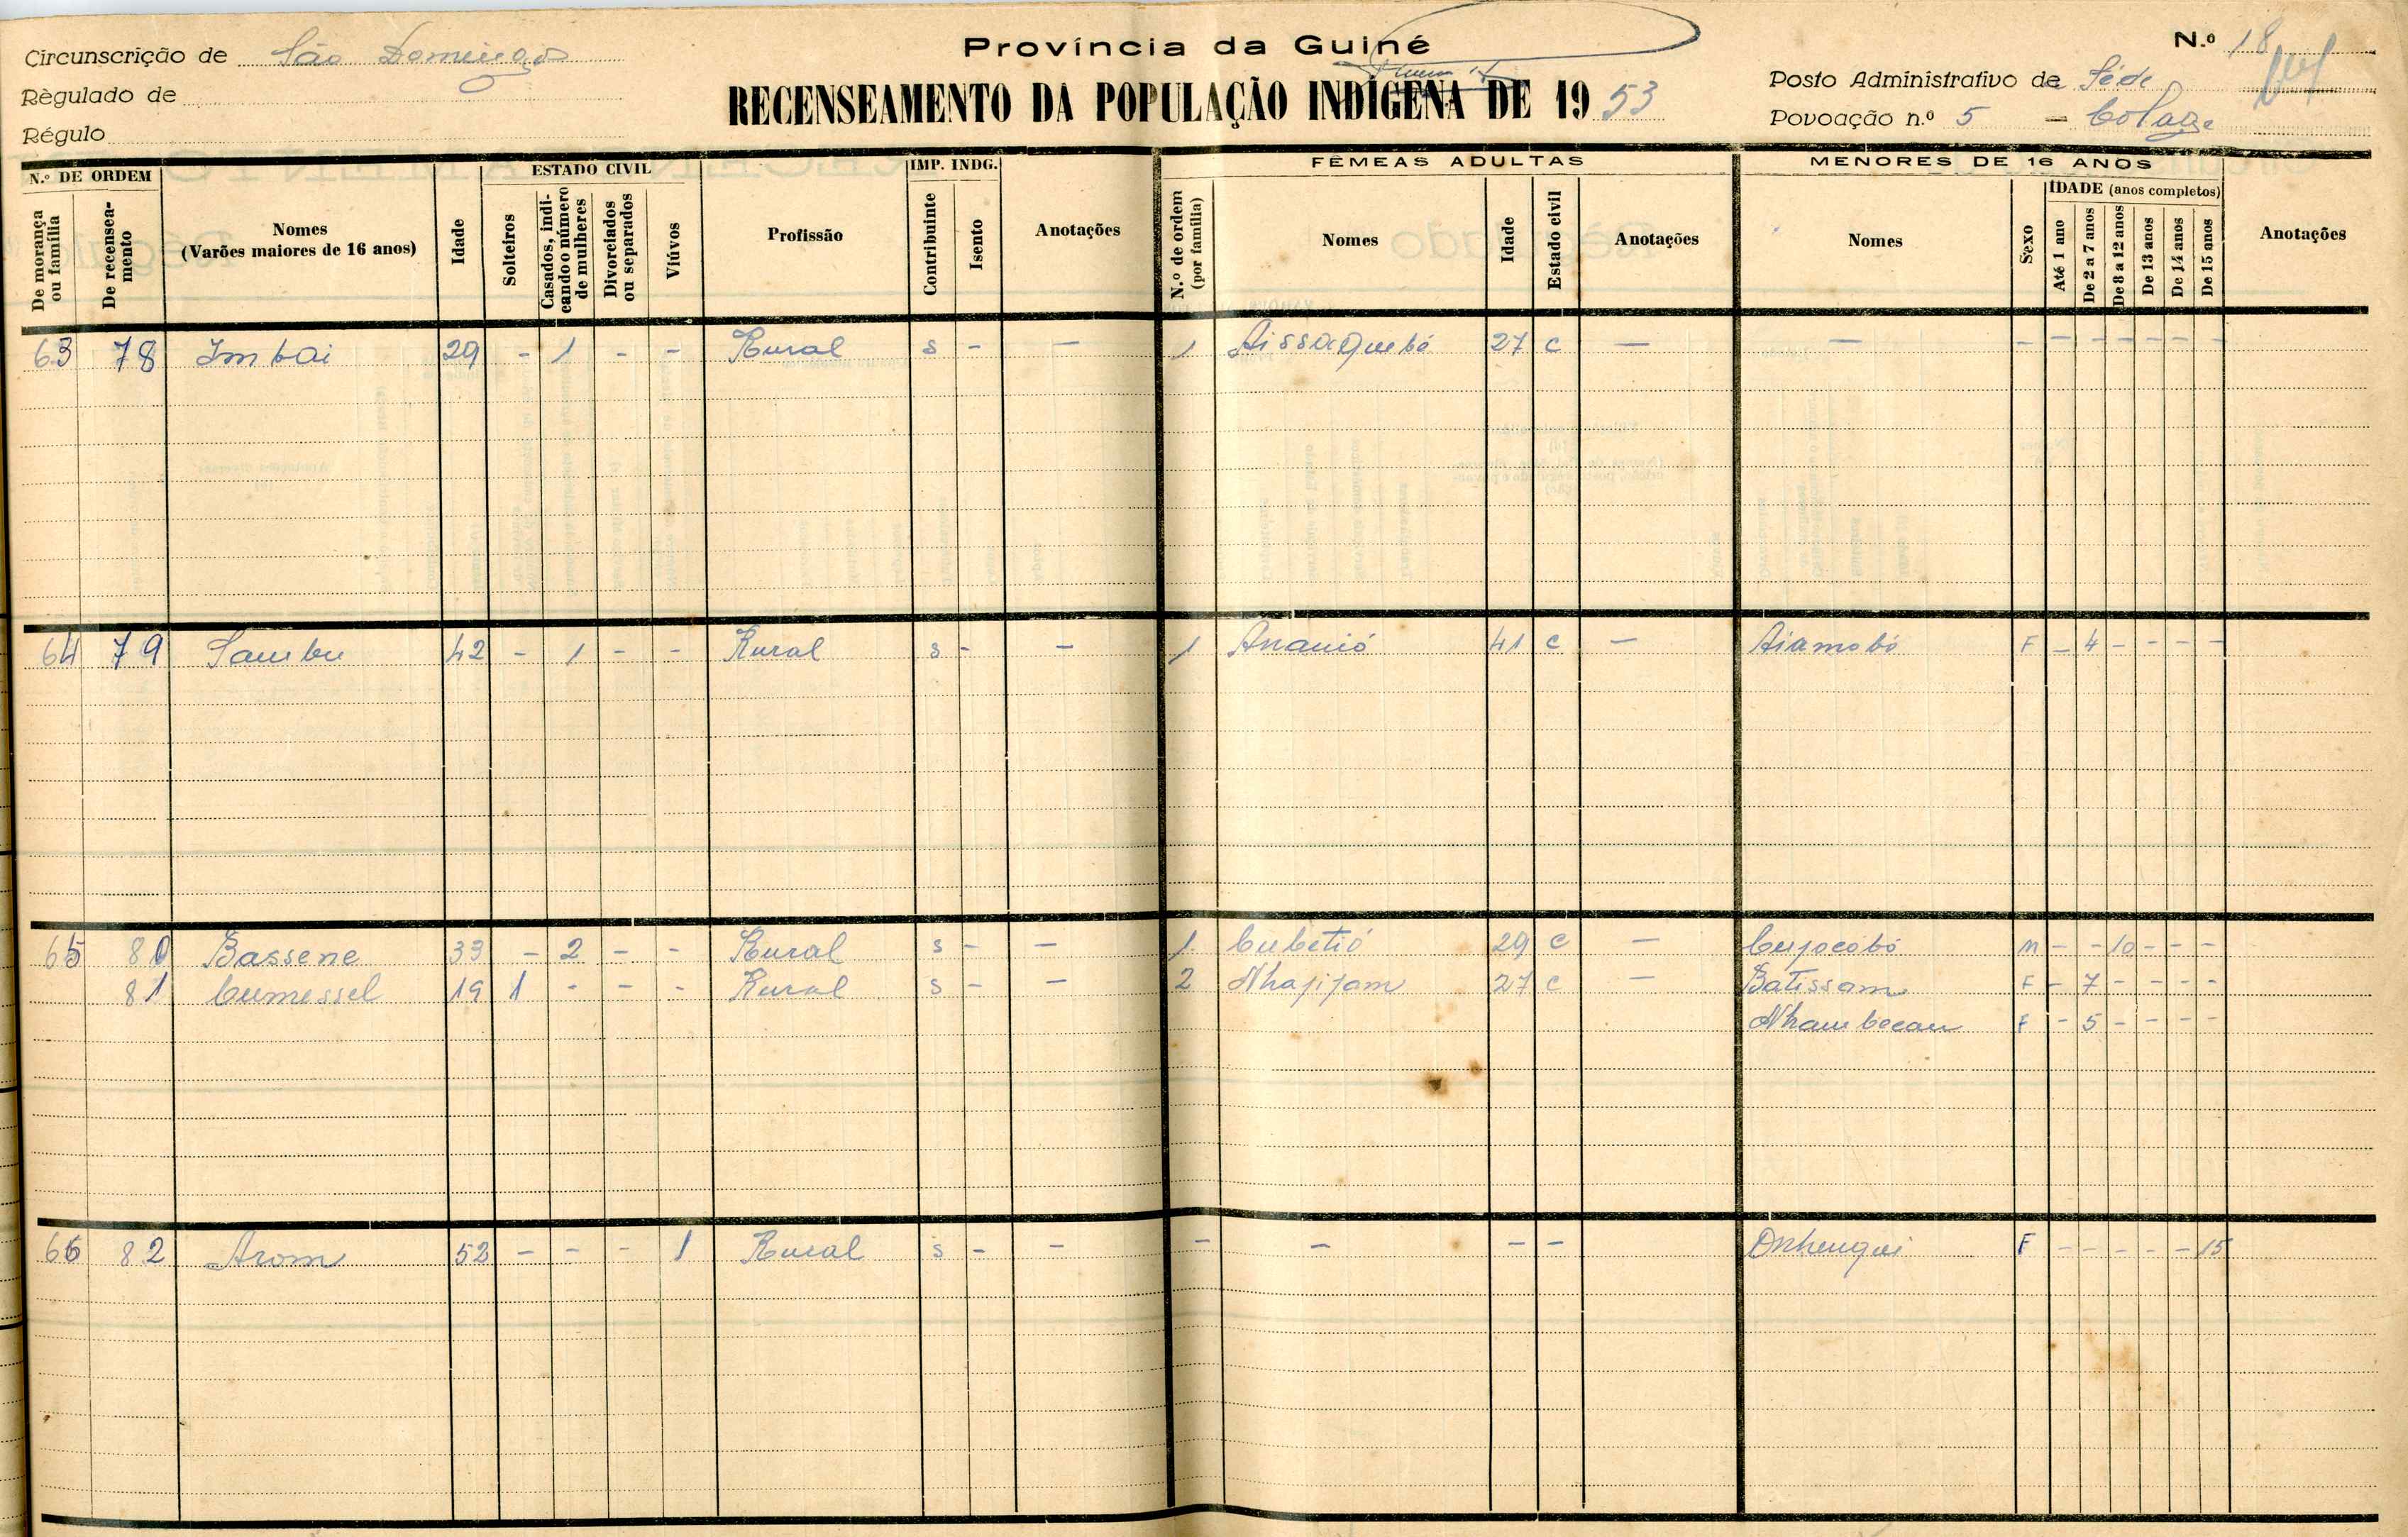 Circunscrição de São Domingos
Règulado de
Régulo
Província da Guiné
RECENSEAMENTO DA POPULAÇÃO INDÍGENA DE 1953
N.º 18
Posto Administrativo de Séde
Povoação n.º 5 - Colage
N.º DE ORDEM
De morança ou família
De recenseamento
Nomes
(Varões maiores de 16 anos)
Idade
ESTADO CIVIL
Solteiros
Casados, indicando o número de mulheres
Divorciados ou separados
Viúvos
Profissão
IMP. INDG.
Contribuinte
Isento
Anotações
FÊMEAS ADULTAS
N.º de ordem (por família)
Nomes
Idade
Estado civil
Anotações
MENORES DE 16 ANOS
Nomes
Sexo
IDADE (anos completos)
Até 1 ano
De 2 a 7 anos
De 8 a 12 anos
De 13 anos
De 14 anos
De 15 anos
Anotações
63 78 Imbai 29 - 1 - - Rural s - - 1 Aissaquebó 27 C - - - - - - - - -
64 79 Sambu 42 - 1 - - Rural s - - 1 Ananió 41 C - Aiamobó F - 4 - - - -
65 80 Bassene 33 - 2 - - Rural s - - 1 Cubetió 29 C - Cujocobó M - - 10 - - -
81 Cumessel 19 1 - - - Rural s - - 2 Nhajijam 27 C - Batissam F - 7 - - - -
Nhambecau F - 5 - - - -
66 82 Arom 52 - - - 1 Rural s - - - - - - Onhengui F - - - - - 15